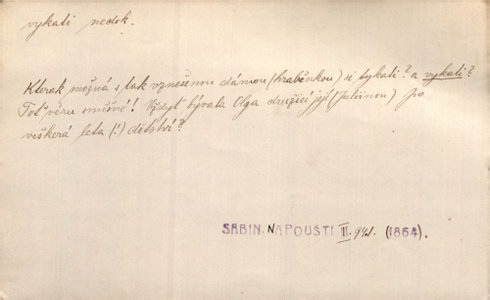 vykati nedok.
Kterak možná s tak vznešenou dámou (hraběnkou) si tykati? a vykati?
Toť věru směšné! Vždyť bývala Olga družicí její (Julvinou) po
veškerá léta (!) dětství?
SABIN, NAPOUSTI II. 941. (1864).